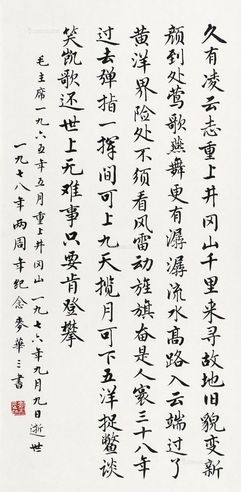 久有凌云志重上井冈山千里来寻故地旧貌变新
颜到处莺歌燕舞更有潺潺流水高路入云端过了
黄洋界险处不须看风雷动旌旗奋是人寰三十八年
过去弹指一挥间可上九天揽月可下五洋捉鳖谈
笑凯歌还世上无难事只要肯登攀
毛主席一九六五年五月重上井冈山一九七六年九月九日逝世
一九七八年两周年纪念麦华三书